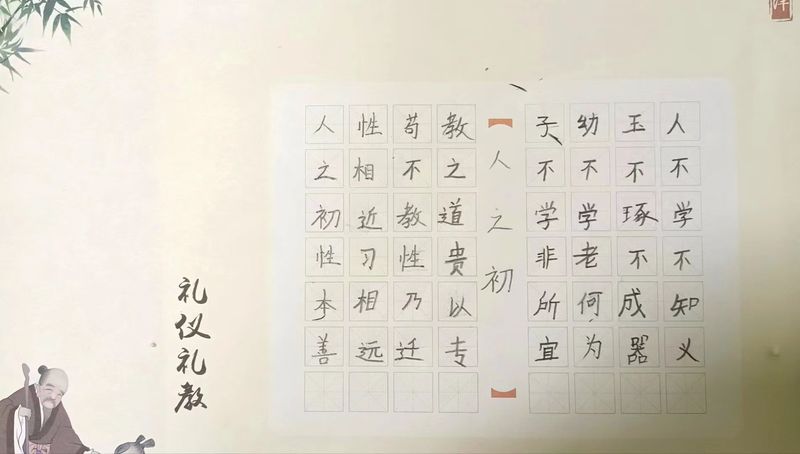 礼仪礼教
人之初性本善
性相近习相远
苟不教性乃迁
教之道贵以专
人之初
子不学非所宜
幼不学老何为
玉不琢不成器
人不学不知义